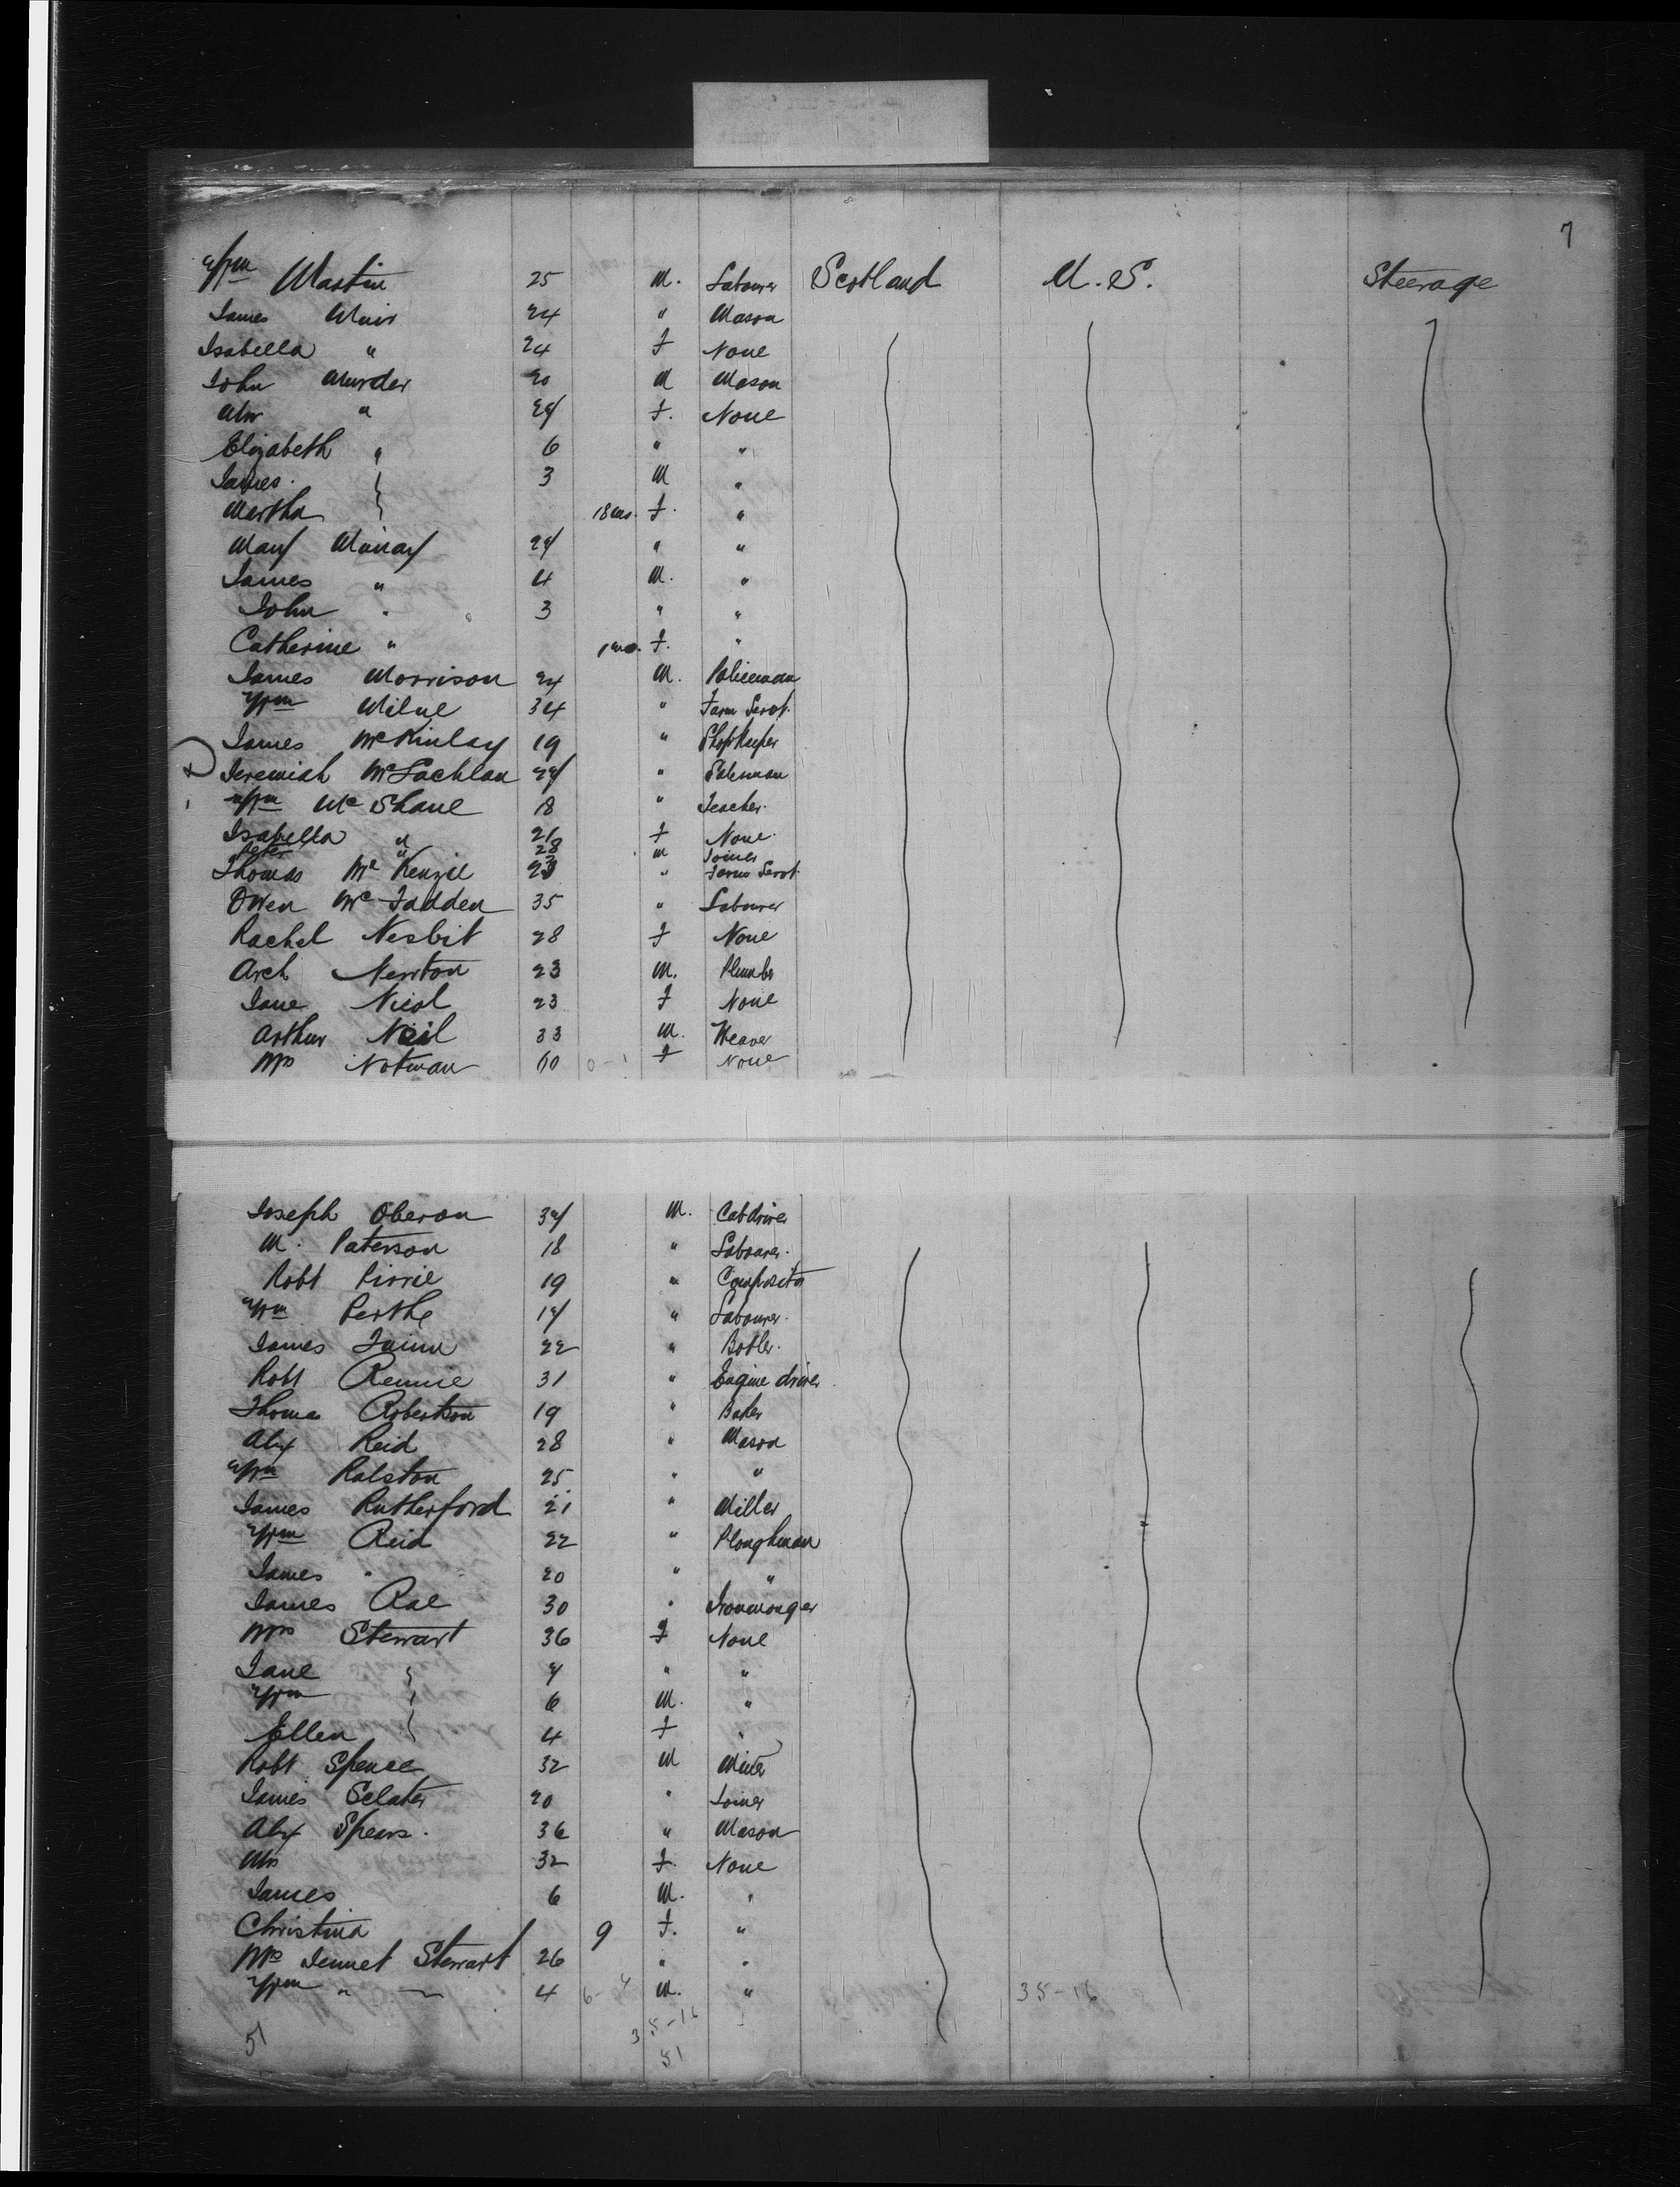 7
Wm Martin 25 M. Labourer Scotland U.S. Steerage
James Muir 24 " Mason
Isabella " 24 F None
John Murder 30 M Mason
Mrs " 27 F. None
Elizabeth " 6 " "
James 3 M "
Martha 18 ms. F. "
Mary Murray 27 " "
James " 4 M. "
John " 3 " "
Catherine " 1 mo. F. "
James Morrison 24 M. Policeman
Wm Milne 34 " Farm Servt.
James McKinlay 19 " Shopkeeper
Jeremiah McLachlan 27 " Salesman
Wm McShane 18 " Teacher.
Isabella " 21 F None
Peter " 28 M Joiner
Thomas McKenzie 23 " Farm Servt.
Owen McFadden 35 " Labourer
Rachel Nesbit 28 F None
Arch Newton 23 M. Plumbr
Jane Nicol 23 F None
Arthur Neil 33 M. Weaver
Mrs Notman 60 0-1 F None
Joseph Oberon 37 M. Cabdriver
M. Paterson 18 " Labourer.
Robt Pirrie 19 " Compositor
Wm Perthe 17 " Labourer.
James 22 "
Robt Rennie 31 " Engine driver
Thomas Robertson 19 " Baker
Alex Reid 28 " Mason
Wm Ralston 25 " "
James Rutherford 21 " Miller
Wm Reid 22 " Ploughman
James " 20 " "
James Rae 30 " Ironmonger
Mrs Stewart 36 F None
Jane 7 " "
Wm 6 M. "
Ellen 4 F "
Robt Spence 32 M Miner
James Sclater 20 " Joiner
Alex Spears. 36 " Mason
Mrs 32 F. None
James 6 M. "
Christina 9 F. "
Mrs Jennet Stewart 26 " "
Wm " 4 6- 4 M. " 35-16
51 35-16
51